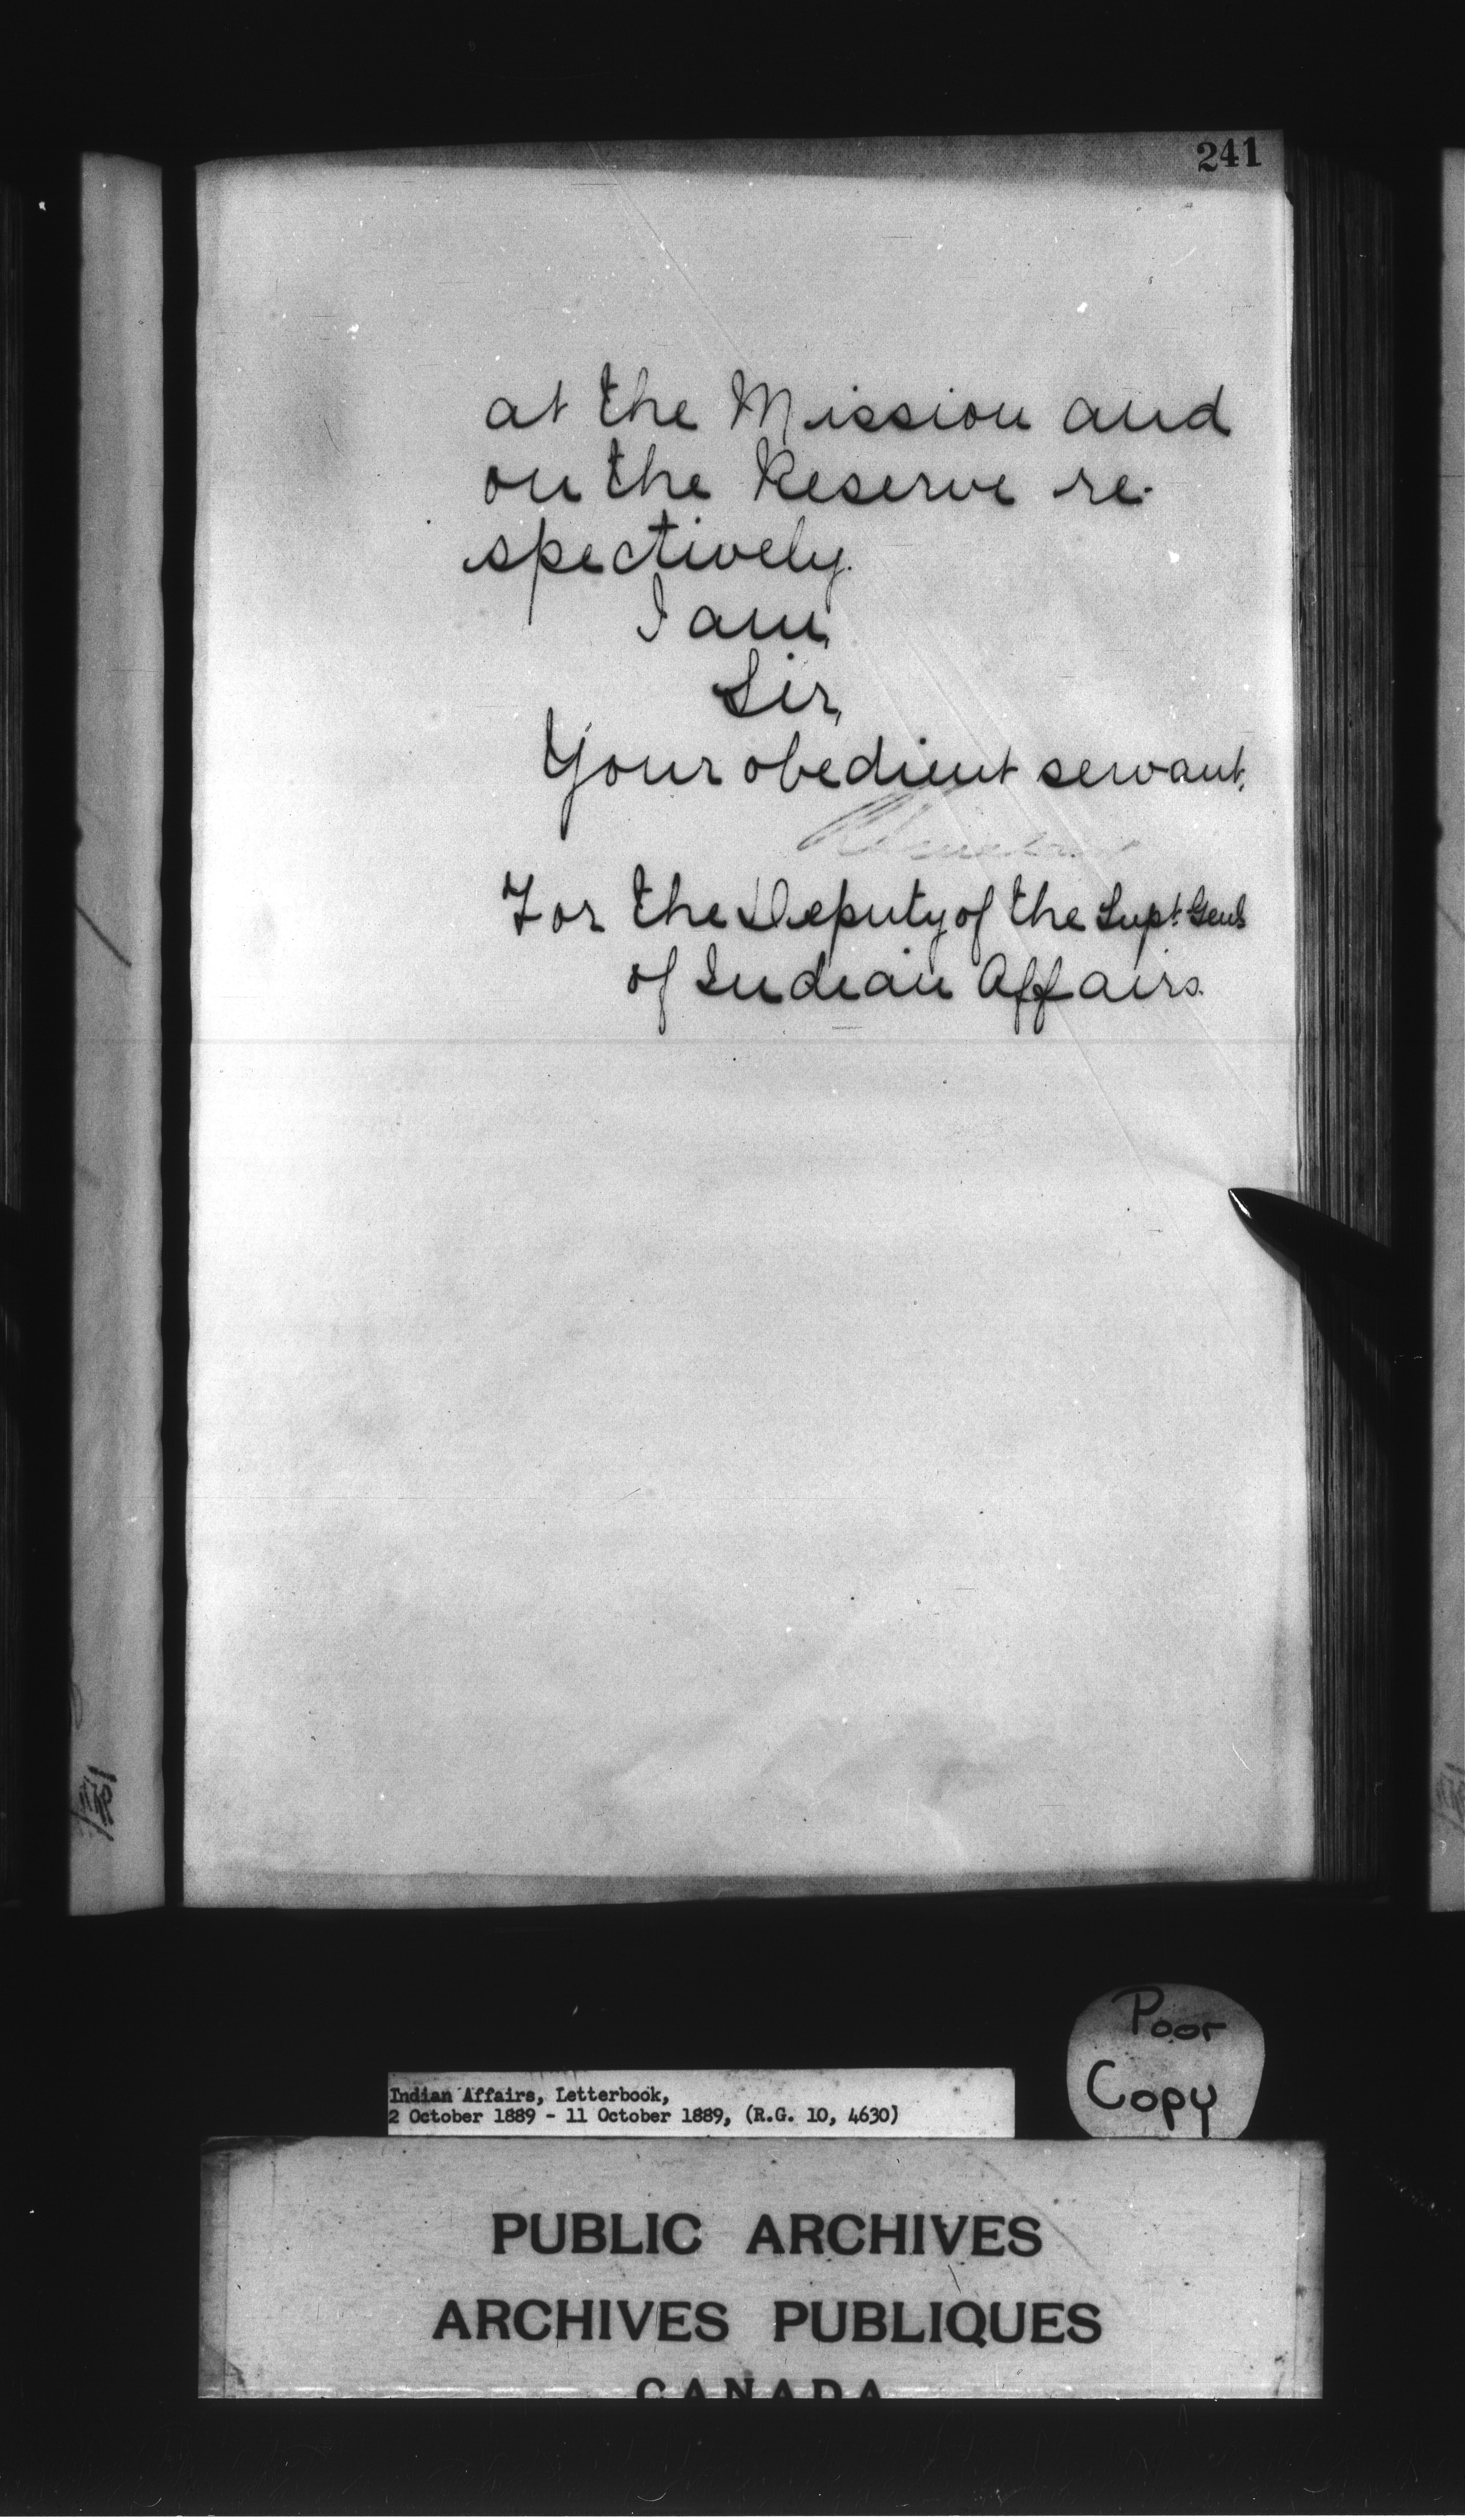 241
at the Mission and
on the Reserve re-
spectively.
I am,
Sir,
Your obedient servant,
For the Deputy of the Supt. Genl
of Indian Affairs.
Poor
Copy
Indian Affairs, Letterbook,
2 October 1889 - 11 October 1889, (R.G. 10, 4630)
PUBLIC ARCHIVES
ARCHIVES PUBLIQUES
CANADA